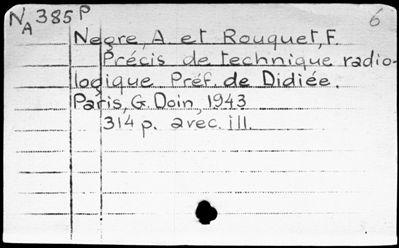 N 385 P 6
A
Negre, A. et Rouquet, F.
Précis de technique radio-
logique Préf. de Didiée.
Paris, G. Doin, 1943
314 p. avec ill.